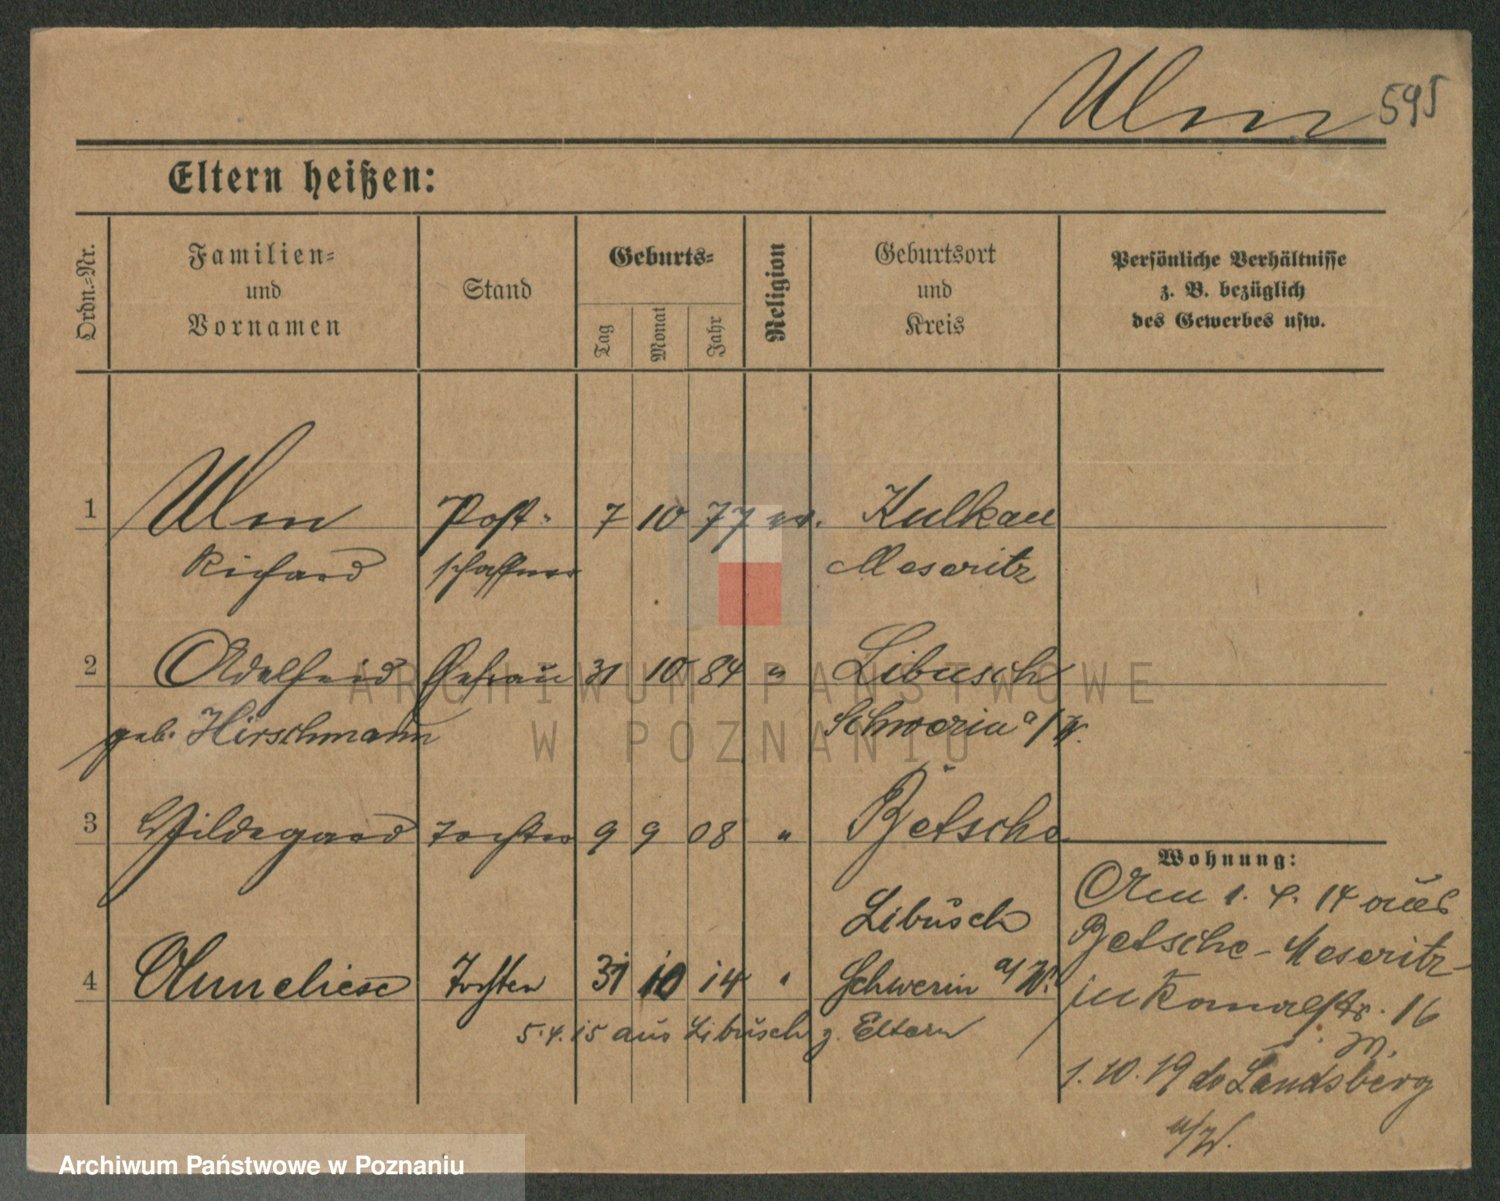 Ulm 595
Eltern heißen:
Ordn.-Nr.
Familien-
und
Vornamen
Stand
Geburts-
Tag
Monat
Jahr
Religion
Geburtsort
und
Kreis
Persönliche Verhältnisse
z. B. bezüglich
des Gewerbes usw.
1 Ulm Post- 7 10 77 ev. Kulkau
Richard schaffner Meseritz
2 Adelheid Ehefrau 31 10 84 " Libusch
geb. Hirschmann Schwerin a/W.
3 Hildegard Tochter 9 9 08 " Betsche
Wohnung:
Am 1. 4. 14 aus
Betsche-Meseritz
in Kanalstr. 16
Libusch
4 Anneliese Tochter 31 10 14 " Schwerin a/W.
5.4.15 aus Libusch z. Eltern
1.10.19 do Landsberg
a/W.
ARCHIWUM PAŃSTWOWE
W POZNANIU
Archiwum Państwowe w Poznaniu